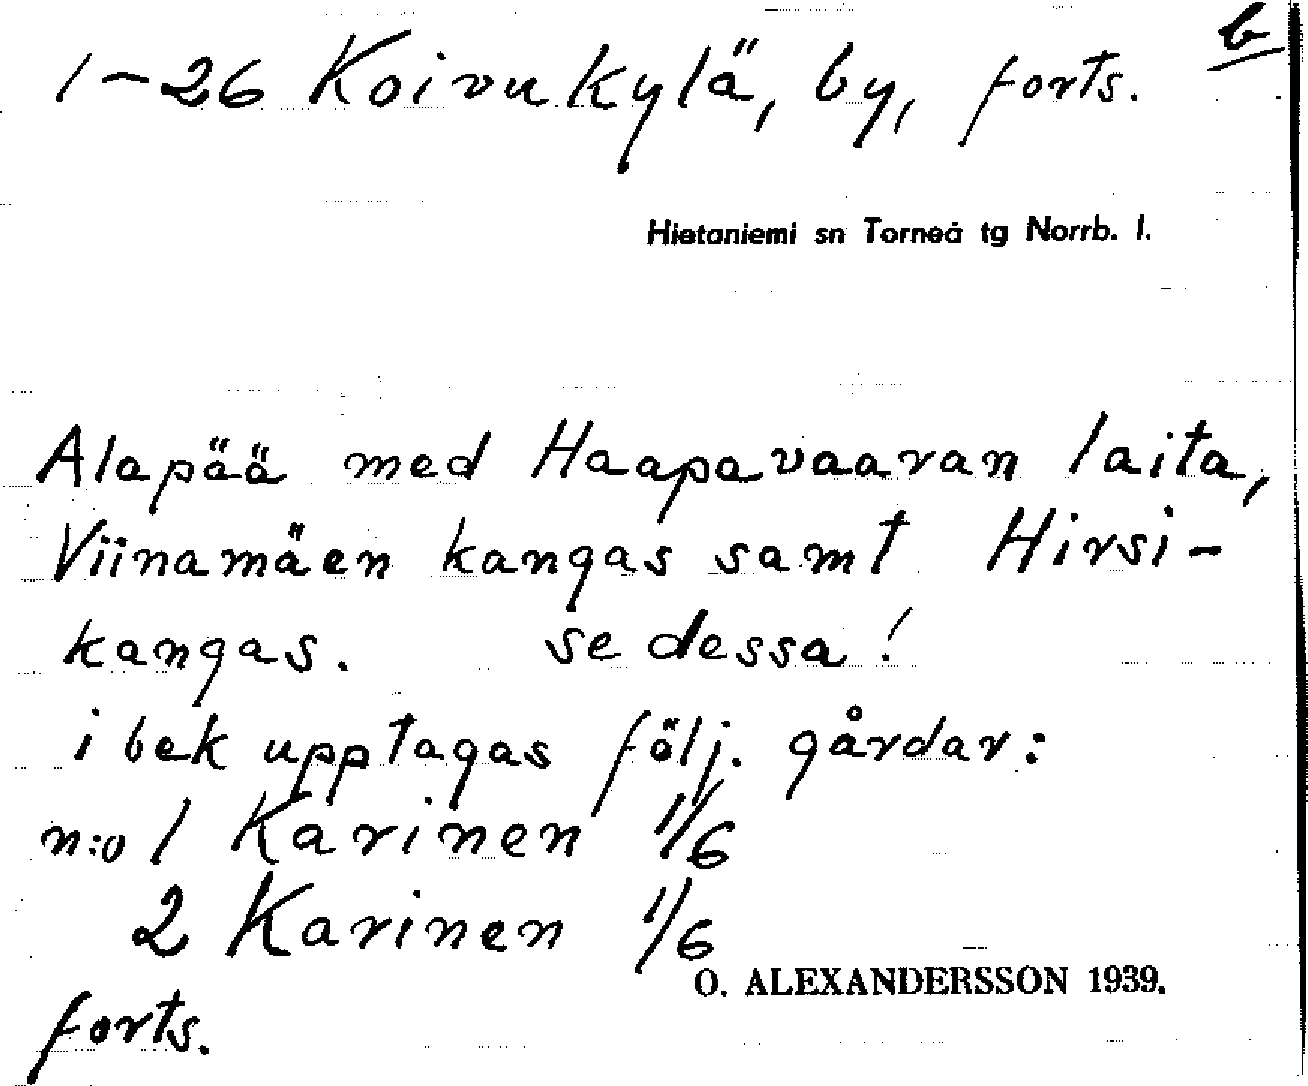 b
1-26 Koivukylä, by, forts.
Hietaniemi sn Torneå tg Norrb. l.
Alapää med Haapavaaran laita,
Viinamäen kangas samt Hirsi-
kangas. se dessa!
i bek upptagas följ. gårdar:
n:o 1 Karinen 1/6
2 Karinen 1/6
O. ALEXANDERSSON 1939.
forts.